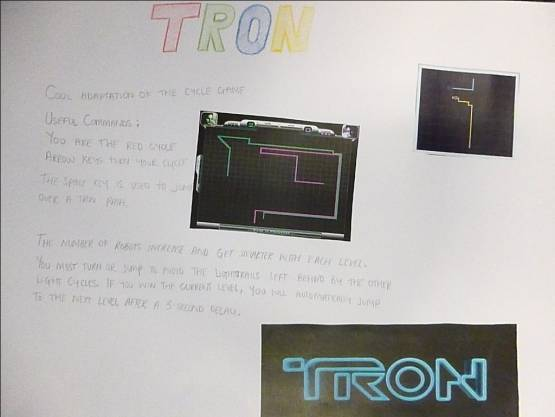 TRON
COOL ADAPTATION OF THE CYCLE GAME
USEFUL COMMANDS:
YOU ARE THE RED CYCLE
ARROW KEYS TURN YOUR CYCLE
THE SPACE KEY IS USED TO JUMP
OVER A TRON PATH.
THE NUMBER OF ROBOTS INCREASE AND GET SMARTER WITH EACH LEVEL.
YOU MUST TURN OR JUMP TO AVOID THE LIGHTTRAILS LEFT BEHIND BY THE OTHER
LIGHT CYCLES. IF YOU WIN THE CURRENT LEVEL, YOU WILL AUTOMATICALLY JUMP
TO THE NEXT LEVEL AFTER A 3-SECOND DELAY.
TRON